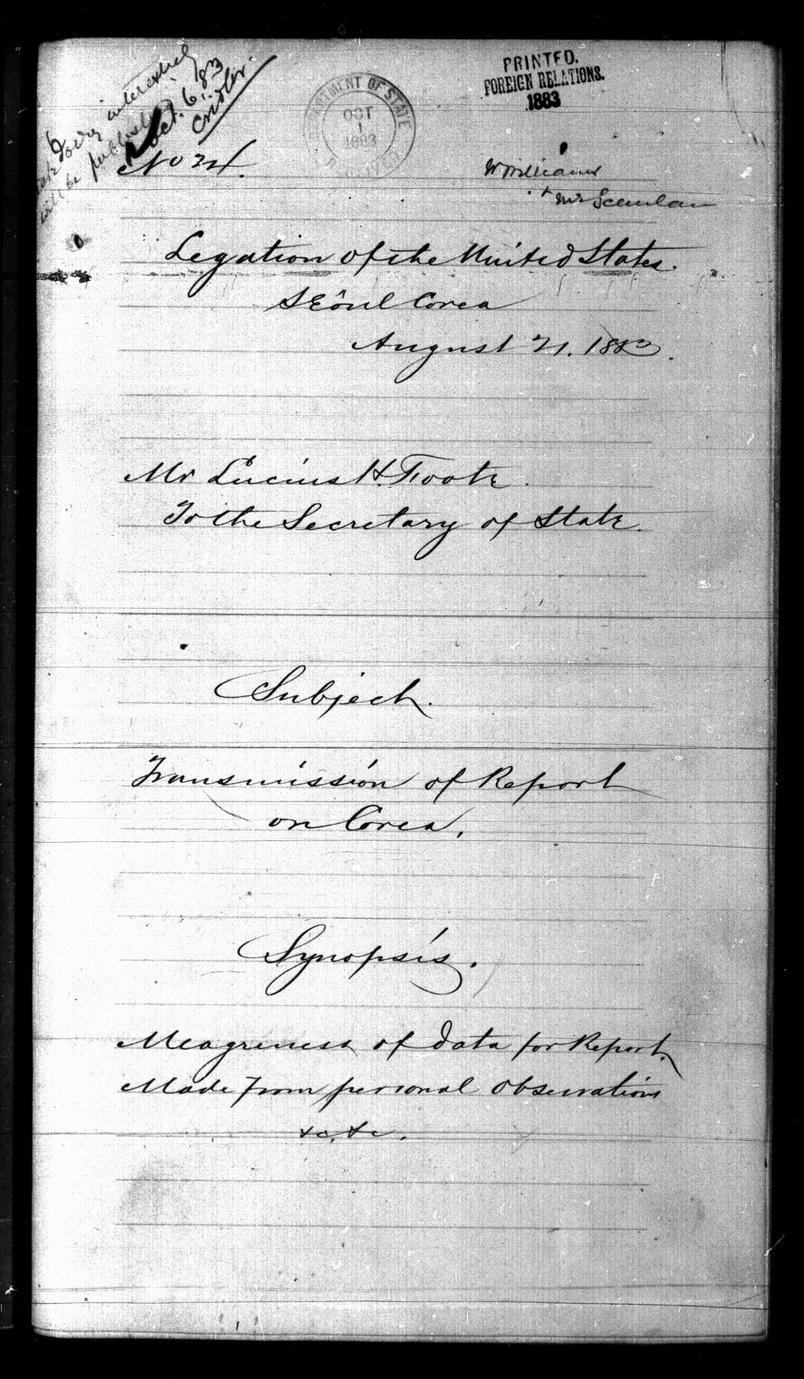 very interesting
will be published
Oct. 6. '83
Cridler.
DEPARTMENT OF STATE
OCT
1
1883
PRINTED.
FOREIGN RELATIONS.
1883
No 24.
W Williams
+ Mr Scanlan
Legation of the United States.
SEôul Corea
August 21. 1883.
Mr Lucius H. Foote.
To the Secretary of State.
Subject.
Transmission of Report
on Corea.
Synopsis.
Meagreness of data for Report.
Made from personal observations
&c. &c.